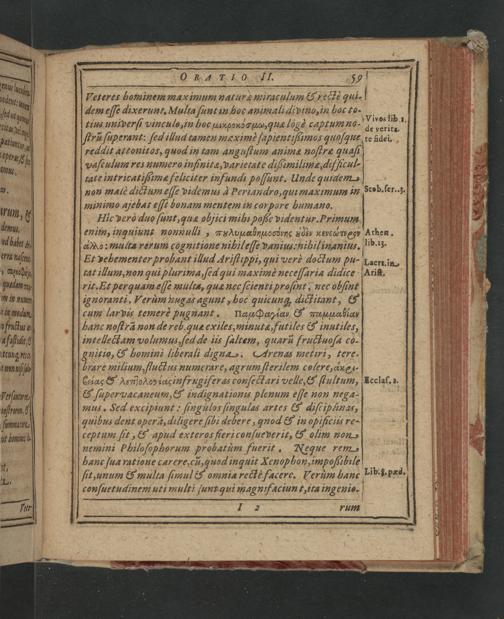 ORATIO II. 59
Veteres hominem maximum naturæ miraculum & rectè qui-
dem esse dixerunt. Multa sunt in hoc animali divino, in hoc to-
tius universi vinculo, in hoc μικροκόσμῳ, quæ lõgè captum no-
strũ superant: sed illud tamen maximè sapientissimos quosque
reddit attonitos, quod in tam angustum animæ nostræ quasi
vasculum res numero infinitæ, varietate dissimilimæ, difficul-
tate intricatissimæ feliciter infundi possunt. Unde quidem
non malè dictum esse videmus à Periandro, qui maximum in
minimo ajebas esse bonam mentem in corpore humano.
Hic verò duo sunt, quæ objici mihi posse videntur. Primum
enim, inquiunt nonnulli, πυλυμαθημοσύνης οὐδὲν κενεώτερον
ἄλλο: multa rerum cognitione nihil esse vanius: nihil inanius.
Et vehementer probant illud Aristippi, qui verè doctum pu-
tat illum, non qui plurima, sed qui maximè necessaria didice-
rit. Et per quam esse multa, quæ nec scienti prosint, nec obsint
ignoranti. Verùm nugas agunt, hoc quicunq; dictitant, &
cum larvis temerè pugnant. Παμφαγίαν & παμμαθίαν
hanc nostrã non de reb. quæ exiles, minutæ, futiles & inutiles,
intellectam volumus, sed de iis saltem, quarũ fructuosa co-
gnitio, & homini liberali digna. Arenas metiri, tere-
brare milium, fluctus numerare, agrum sterilem colere, ἀκρι-
βείας & λεπτολογίας infrugiferas consectari velle, & stultum,
& supervacaneum, & indignationis plenum esse non nega-
mus. Sed excipiunt: singulos singulas artes & disciplinas,
quibus dent operã, diligere sibi debere, quod & in opificiis re-
ceptum sit, & apud exteros fieri consueverit, & olim non
nemini Philosophorum probatum fuerit. Neque rem
hanc sua ratione carere, cũ, quod inquit Xenophon, impossibile
sit, unum & multa simul & omnia rectè facere. Verùm hanc
consuetudinem uti multi sunt qui magnifaciunt, ita ingenio-
I 2 rum
Vives lib. 1.
de verita-
te fidei.
Stob. ser. 3.
Athen.
lib. 13.
Laert. in
Arist.
Ecclas. 2.
Lib. 8. pæd.